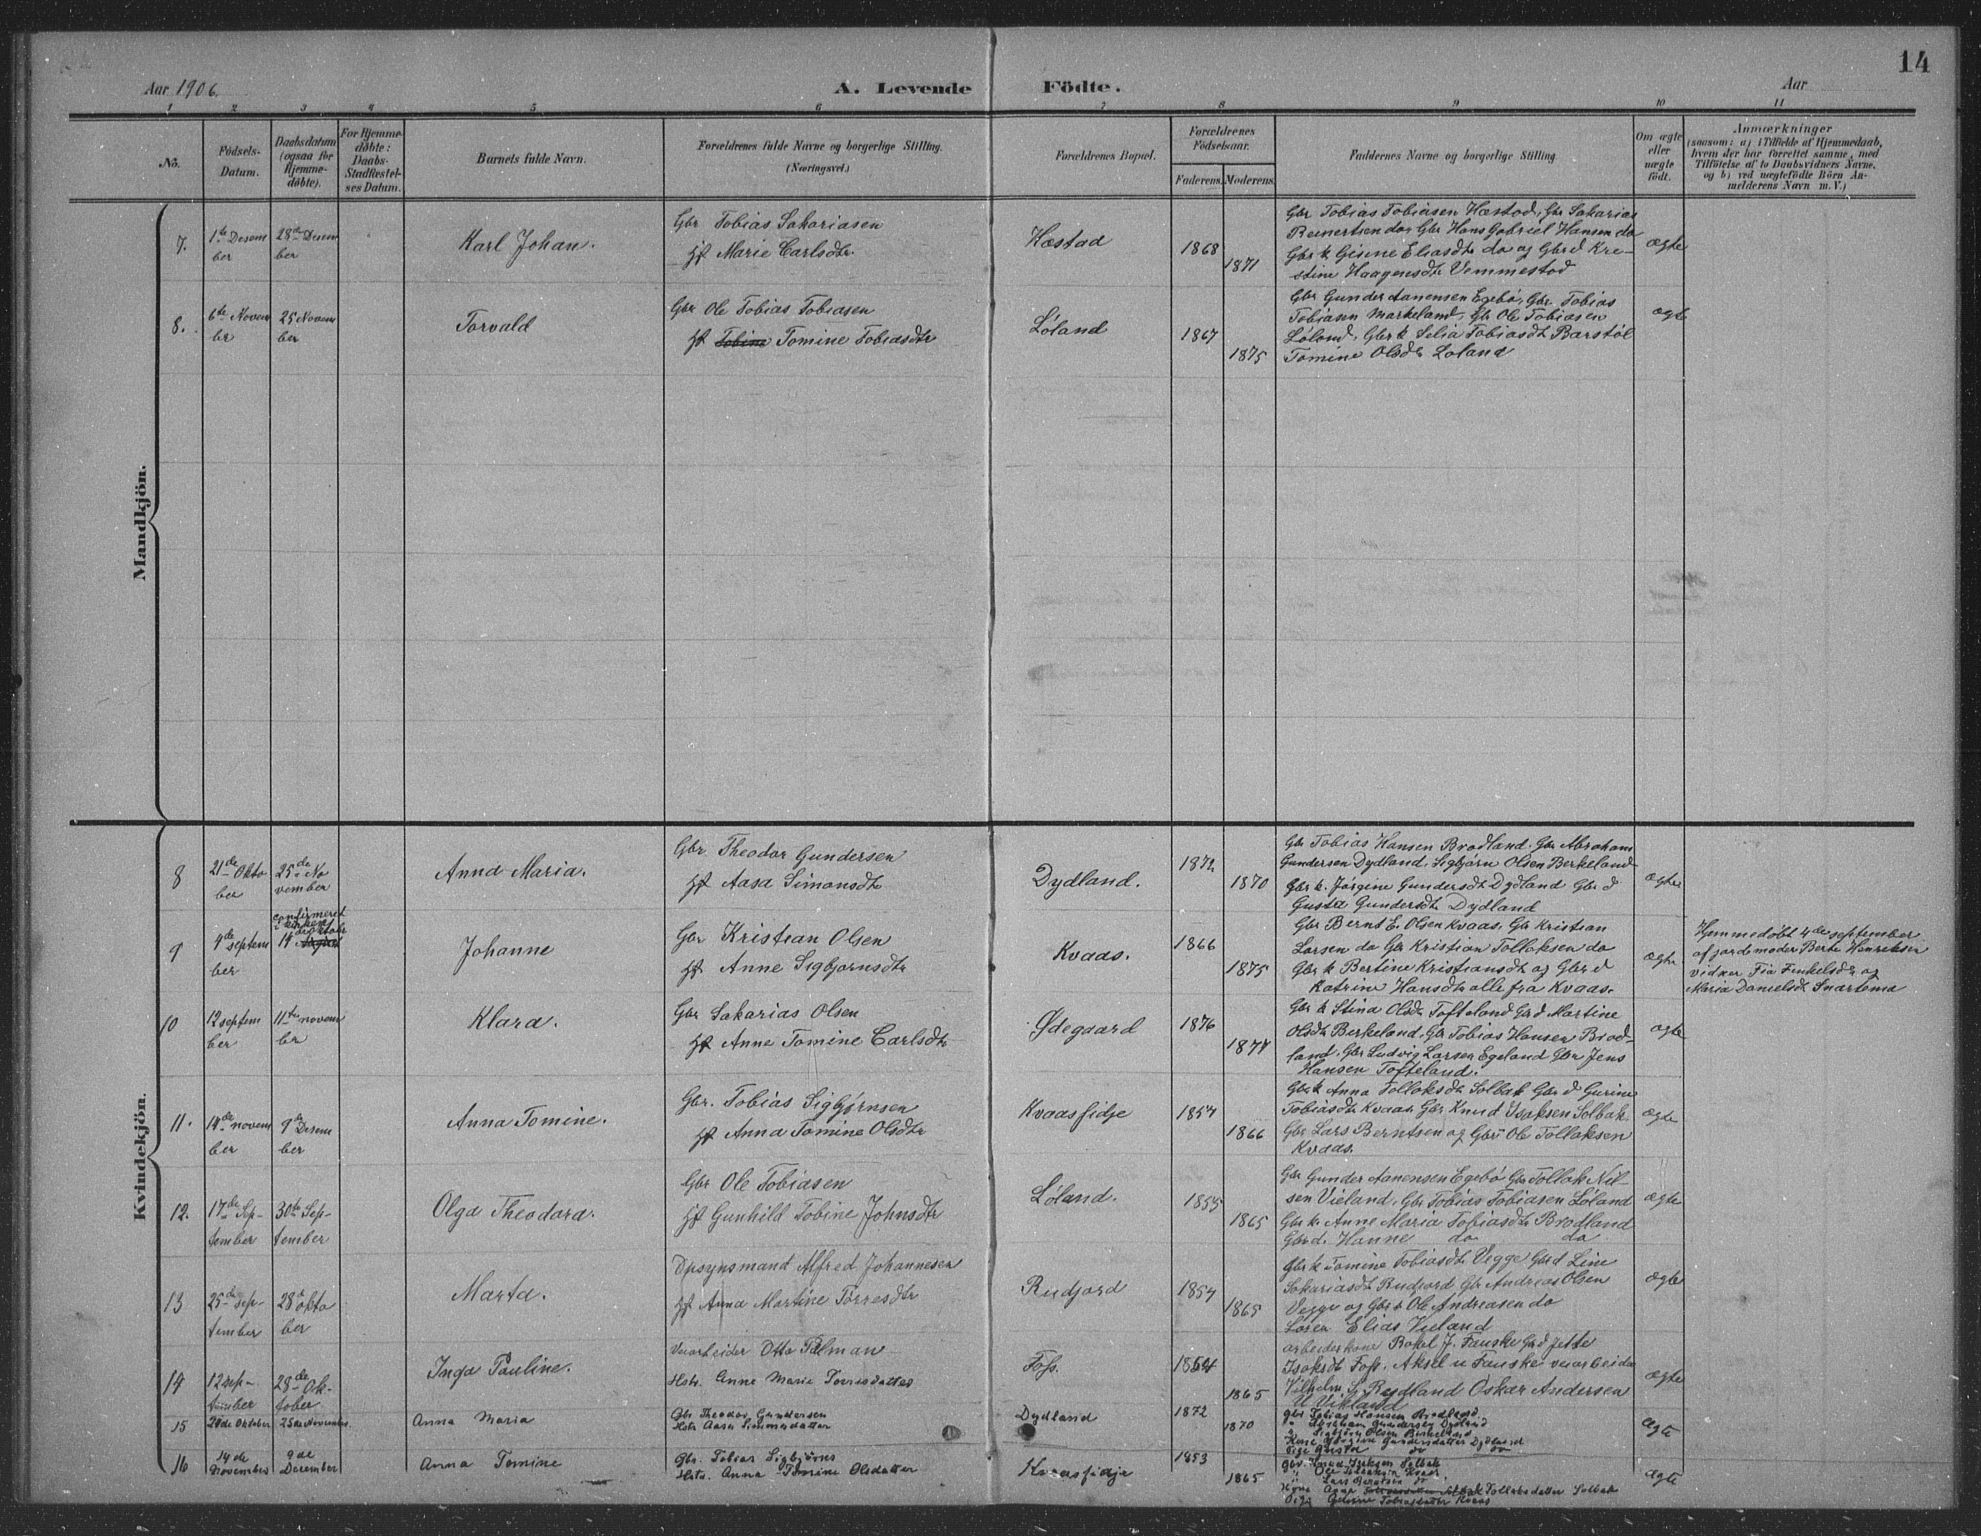 14
Aar 1906. A. Levende Födte. Aar
1 2 3 4 5 6 7 8 9 10 11
No. Födsels-Datum. Daabsdatum (ogsaa for Hjemmedöbte). For Hjemmedöbte: Daabs-Stadfestelses Datum. Barnets fulde Navn. Forældrenes fulde Navne og borgerlige Stilling. (Næringsvei.) Forældrenes Bopæl. Forældrenes Födselsaar. Faderens. Moderens. Faddernes Navne og borgerlige Stilling Om ægte eller uægte födt. Anmærkninger (saasom: a) i Tilfælde af Hjemmedaab, hvem der har forrettet samme, med Tilföielse af to Daabsvidners Navne, og b) ved uægtefödte Börn Anmelderens Navn m. V.)
Mandkjön.
7. 1ste Desember 28de Desember Karl Johan. Gbr Tobias Sakariasen
Hf Marie Carlsdtr. Hæstad 1868 1871 Gbr Tobias Tobiasen Hæstad, Gbr Sakarias
Reinertsen do, Gbr Hans Gabriel Hansen do
Gbr k Gisene Eliasdt do og Gbr d Kre-
stine Haagensdt Vemmestad ægte
8. 6te November 25 November Torvald Gbr Ole Tobias Tobiasen
Hf Tomine Tobiasdtr Løland 1867 1875 Gbr Gunder Aanensen Egebø, Gbr Tobias
Tobiasen Markeland, Gbr Ole Tobiasen
Løland, Gbr k Selia Tobiasdt Barstöl
Tomine Olsdt Løland ægte
Kvindekjön.
8 21de Oktober 25de November Anna Maria. Gbr. Theodor Gundersen
Hf Aasa Simonsdt Dydland. 1872 1870 Gbr Tobias Hansen Brodland, Gbr Abraham
Gundersen Dydland, Sigbjørn Olsen Berkeland
Gbr k. Jørgine Gundersdt Dydland Gbr d
Gusta Gundersdt Dydland ægte
9 4de september confirmeret i kirken 14 oktobr Johanne Gbr Kristian Olsen
Hf Anne Sigbjørnsdtr Kvaas. 1866 1875 Gbr Bernt E. Olsen Kvaas, Gbr Kristian
Larsen do Gbr Kristian Tollaksen do
Gbr k Bertine Kristiansdt og Gbr d
Katrine Hansdtr alle fra Kvaas. ægte Hjemmedøbt 4de september
af jordemoder Berte Henriksen
vidner Tia Finkelsdt og
Maria Danielsdt Snartemo
10 12 september 11te november Klara. Gbr Sakarias Olsen
Hf Anne Tomine Carlsdtr Ødegaard 1876 1877 Gbr k Stina Olsdt Tofteland Gbr d Martine
Olsdt Berkeland, Gbr Tobias Hansen Brod-
land, Gbr Ludvig Larsen Egeland Gbr Jens
Hansen Tofteland. ægte
11. 14de november 9de Desember Anna Tomine. Gbr. Tobias Sigbjørnsen
Hf Anna Tomine Olsdtr Kvaasfidje 1854 1866 Gbr k Anna Tollaksdt Solbak Gbr d Gurine
Tobiasdt Kvaas Gbr Knud Isaksen Solbak
Gbr Lars Berntsen og Gbr Ole Tollaksen
Kvaas. ægte
12. 17de September 30te September Olga Theodora. Gbr Ole Tobiasen
Hf Gunhild Tobine Johnsdtr Løland. 1855 1865 Gbr Gunder Aanensen Egebø Gbr Tollak Nil-
sen Vieland, Gbr Tobias Tobiasen Løland
Gbr k. Anne Maria Tobiasdt Brodland
Gbr d. Hanne do do ægte
13 25de september 28d oktober Marta. Opsynsmand Alfred Johannesen
Hf Anna Martine Torresdtr Rudjord 1854 1865 Gbr k Tomine Tobiasdt Vegge Gbr d Line
Sakariasdt Rudjord Gbr Andreas Olsen
Vegge og Gbr s Ole Andreasen do
Søren Elias Vieland ægte
14 12 september 28de Oktober Inga Pauline. Veiarbeider Otto Palman
Hstr. Anne Marie Torrisdatter Foss. 1864 1865 arbeiderkone Rakel J. Fauske Gbr d Jette
Isaksdt Foss, Aksel Fauske veiarbeider
Vilhelm S. Rudland Oskar Andersen
Vikland ægte
15 21de Oktober 25de November Anna Maria Gbr Theodor Gundersen
Hstr Aasa Simonsdatter Dydland 1872 1870 Gbr Tobias Hansen Brodland
" Abraham Gundersen Dydland
" Sigbjörn Olsen Birkeland
Kone Jörgine Gundersdatter Dydland
Pige Gusta do do ægte
16 14de November 9de December Anna Tomine Gbr. Tobias Sigbjörns
Hstr. Anna Tomine Olsdatter Kvaasfidje 1853 1865 Gbr. Knud Isaksen Solbak
" Ole Tollaksen Kvaas
" Lars Berntsen do
Kone Anna Tollaksdatter Solbak
Pige Gurine Tobiasdatter Kvaas ægte